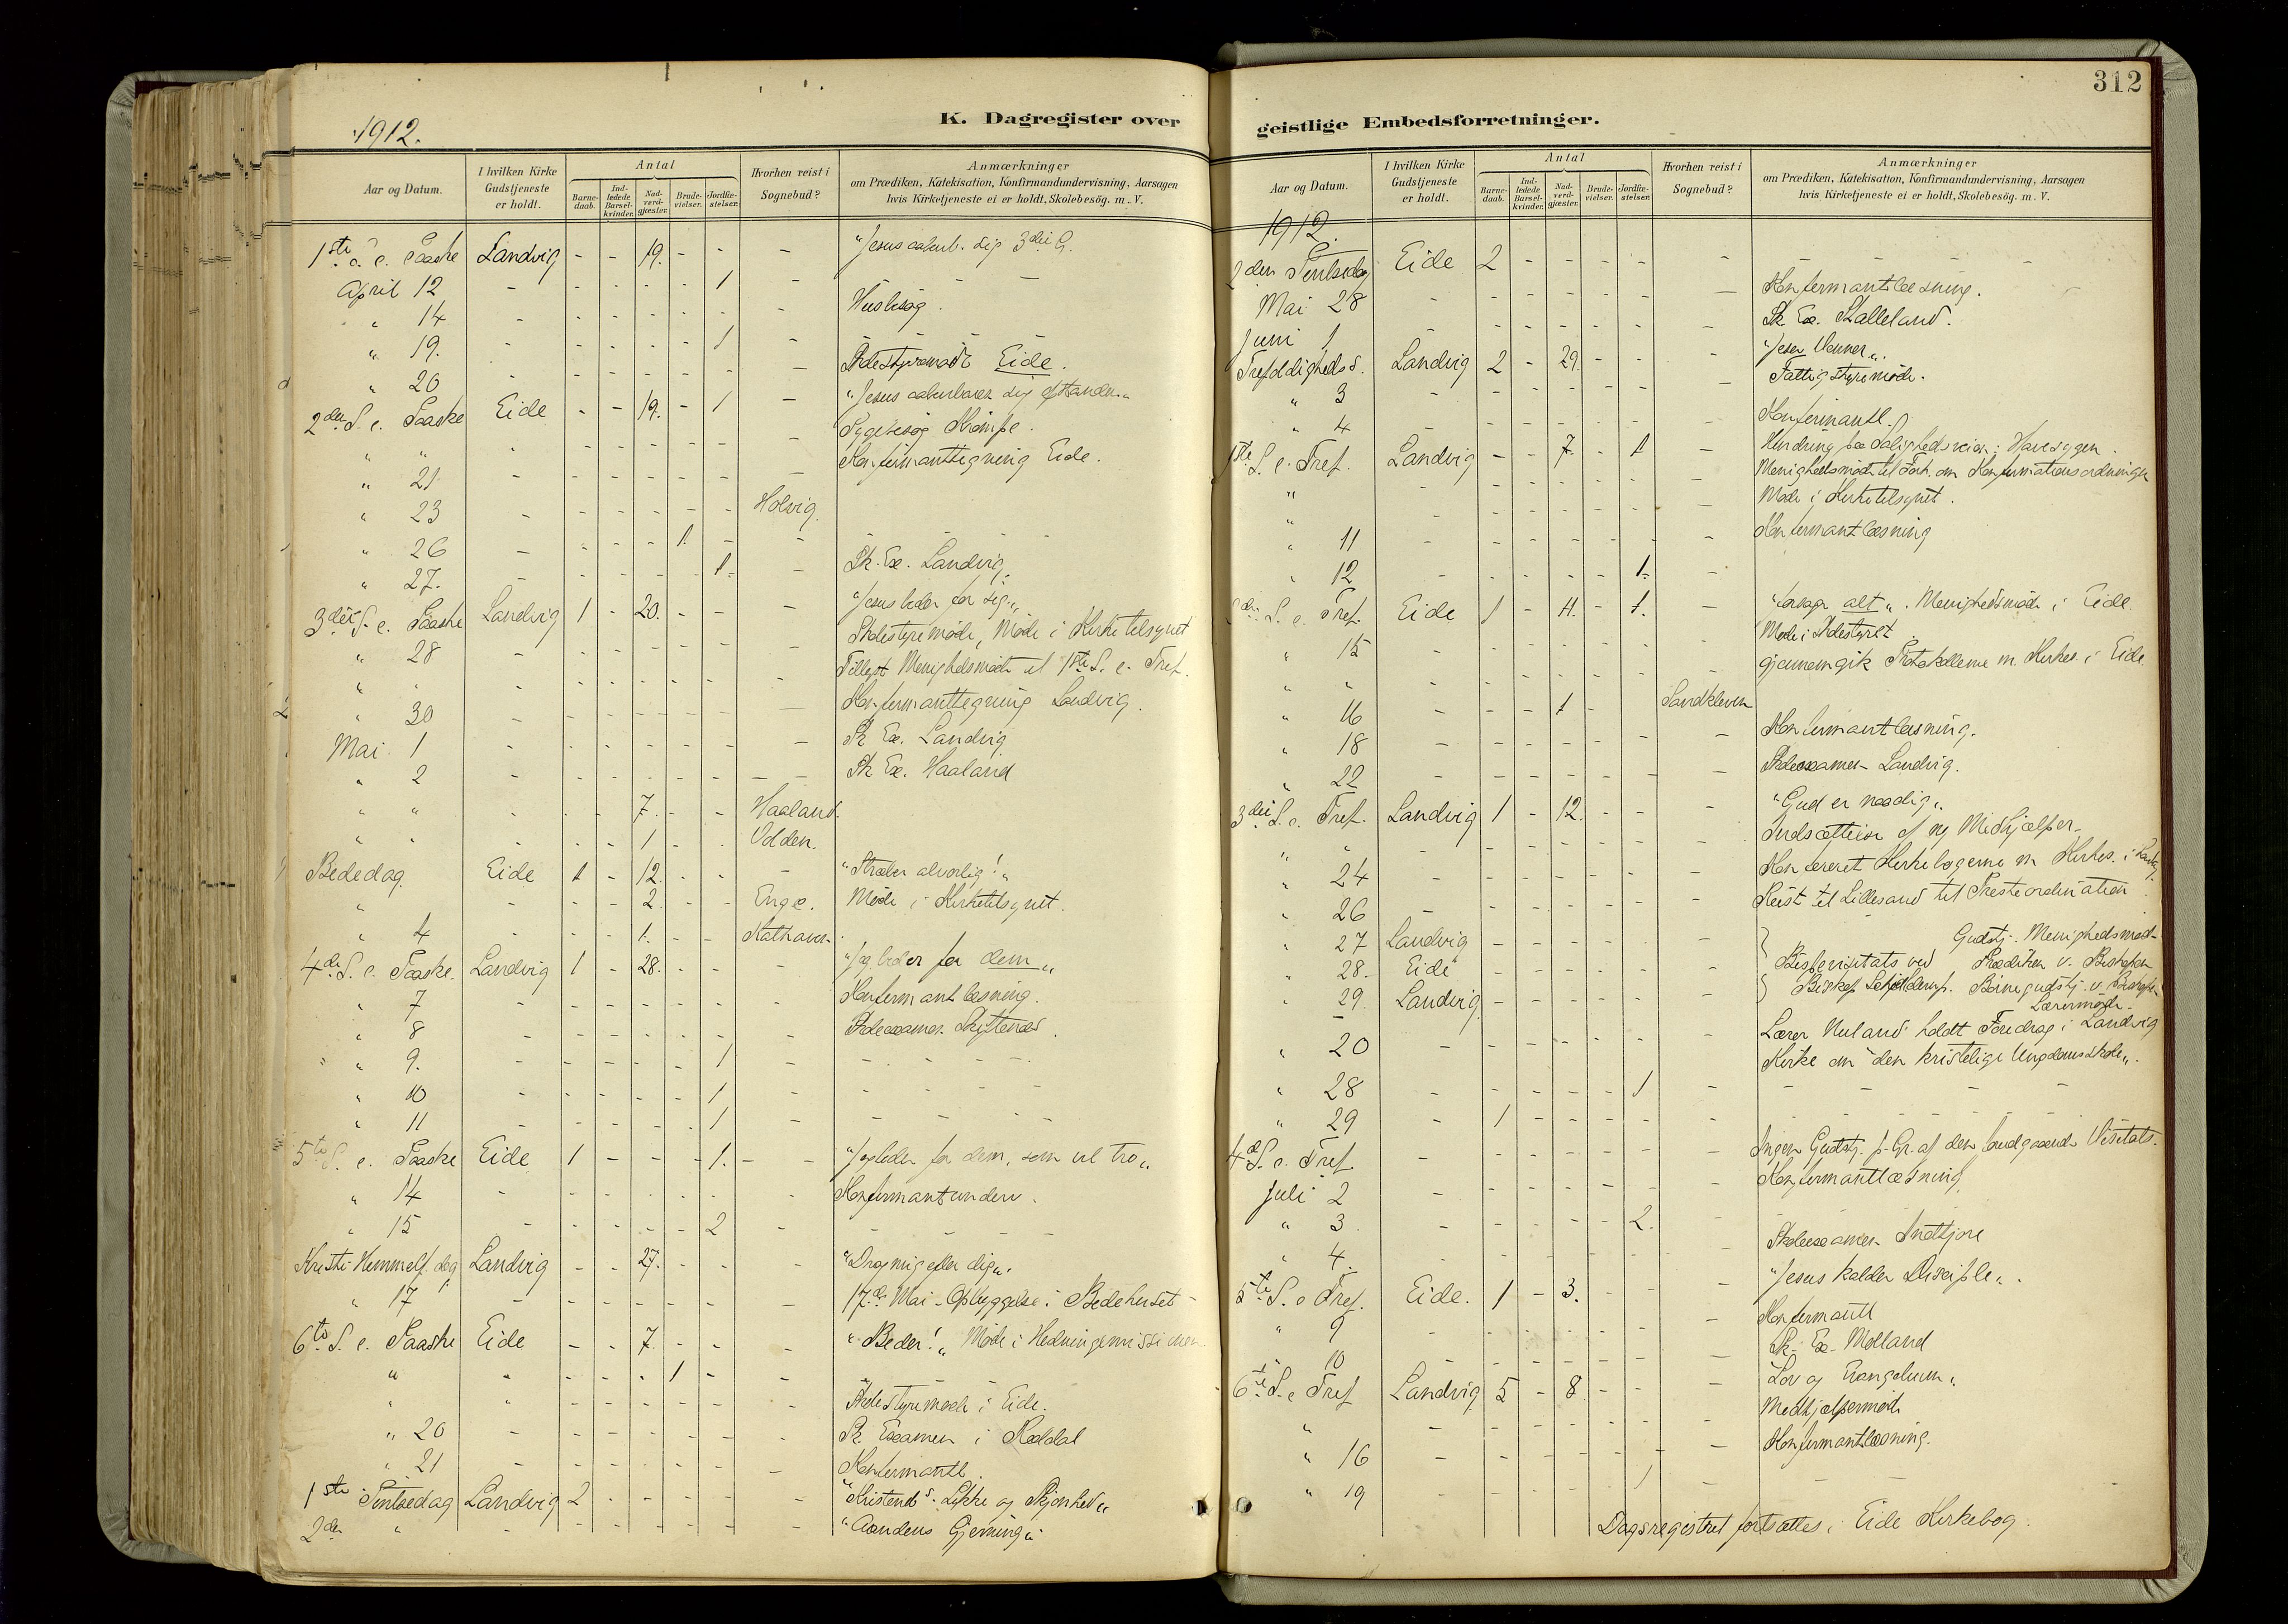 312
1912.
K. Dagregister over
Aar og Datum.
I hvilken Kirke Gudstjeneste er holdt.
Antal
Barne-daab.
Ind-ledede Barsel-kvinder.
Nad-verd-gjæster.
Brude-vielser.
Jordfæ-stelser.
Hvorhen reist i Sognebud?
Anmærkninger
om Prædiken, Katekisation, Konfirmandundervisning, Aarsagen
hvis Kirketjeneste ei er holdt, Skolebesøg. m. V.
1ste S. e. Paaske Landvig - - 19. - - - "Jesus aabenb. sig 3die G.
April 12 - - - - - 1 - - -
" 14 - - - - - - - Husbesøg.
" 19. - - - - - 1 - - -
" 20 - - - - - - - Skolestyremøde Eide.
2den S. e. Paaske Eide - - 19. - 1 - "Jesus aabenbarer sig
" " - - - - - - Sygebesøg
" 21. - - - - - - - Konfirmanttegning Eide.
" 23 - - - - - - Holvig.
" 26 - - - - 1 - - -
" 27. - - - - - 1. - Sk. Ex. Landvig.
3die S. e. Paaske Landvig 1 - 20. - - - "Jesus beder for sig"
" 28 - - - - - - - Skolestyremøde, Møde i Kirketilsynet
" " - - - - - - - Tillyst Menighedsmøde til 1ste S. e. Tref.
" 30 - - - - - - - Konfirmanttegning Landvig.
Mai 1 - - - - - - - Sk. Ex. Landvig
" 2 - - - - - - - Sk. Ex. Haaland
" " - - - 7. - - Haaland.
" " - - - 1 - - Odden.
Bededag. Eide 1 - 12. - - - "Stræber alvorlig!"
" - - - 2. - - Enge. Møde i Kirketilsynet.
" 4 - - - 1. - -
4de S. e. Paaske. Landvig 1 - 28. - - - "Jeg beder for dem"
" 7 - - - - - - - Konfirmantlæsning.
" 8 - - - - - - - Skoleexamen
" 9. - - - - - 1 - - -
" 10 - - - - - 1 - - -
" 11 - - - - - 1 - - -
5te S. e. Paaske Eide 1 - - - 1. - "Jeg beder for dem, som vil tro"
" 14 - - - - - - - Konfirmantunderv.
" 15 - - - - - 2 - - -
Kristi Himmelf. dag Landvig - - 27. - - - "Drag mig efter dig".
" 17 - - - - - - - 17de Mai-Opbyggelse i Bedehuset -
6te S. e. Paaske Eide - - 7. - - - "Beder!" Møde i Hedningemissionen
" " - - - 1 - -
" " - - - - - - Skolestyremøde i Eide.
" 20 - - - - - - - Sk. Examen i Roddal
" 21 - - - - - - - Konfirmantl.
1ste Pintsedag Landvig 2 - - - - - "Kristend.s Lykke og Skjønhed"
2den " - - - - - - - "Aandens Gjerning"
geistlige Embedsforretninger.
Aar og Datum.
I hvilken Kirke Gudstjeneste er holdt.
Antal
Barne-daab.
Ind-ledede Barsel-kvinder.
Nad-verd-gjæster.
Brude-vielser.
Jordfæ-stelser.
Hvorhen reist i Sognebud?
Anmærkninger
om Prædiken, Katekisation, Konfirmandundervisning, Aarsagen
hvis Kirketjeneste ei er holdt, Skolebesøg. m. V.
1912.
2den Pintsedag Eide 2 - - - - - - -
Mai 28 - - - - - - - Konfirmantlæsning.
Juni 1 - - - - - - - Sk. Ex. Skalleland.
Trefoldigheds S. Landvig 2 - 29. - - - "Jesu Venner".
" 3 - - - - - - - Fattigstyremøde.
" 4 - - - - - - - Konfirmantl.
1ste S. e. Tref. Landvig - - 7. - 1 - Hindring paa Salighedsveien: Havesygen.
" - - - - - - - Menighedsmøde til Forh. om Konfirmationsordningen
" - - - - - - - Møde i Kirketilsynet.
" 11 - - - - - - - Konfirmantlæsning
" 12 - - - - - 1. -
2den S. e. Tref. Eide 1 - 4. - 1. - "Forsage alt". Menighedsmøde i Eide.
" 15 - - - - - - - Møde i Skolestyret
" " - - - - - - - gjennemgik Protokollerne m. Kirkes. i Eide.
" 16 - - - 1 - Sandkleven
" 18 - - - - - - - Konfirmantlæsning.
" 22 - - - - - - - Skoleexamen Landvig.
3die S. e. Tref. Landvig 1 - 12. - - - "Gud er naadig".
" " - - - - - - - Indsættelse af ny Medhjælper
" 24 - - - - - - - Konfereret Kirkebøgerne m. Kirkes. i Landv.
" 26 - - - - - - - Reist til Lillesand til Presteordination
" 27 Landvig - - - - - - Gudstj. Menighedsmøde
" 28. Eide - - - - - - Bispevisitats ved Prædiken v. Biskopen
" 29. Landvig - - - - - - Biskop Schjelderup. Børnegudstj. v. Biskopen
Lærermøde.
" 20 - - - - - - - Lærer Nuland holdt Foredrag i Landvig
Kirke om "den kristelige Ungdomsskole".
" 28 - - - - - 1 - - -
" 29 - 1 - - - - - - -
4de S. e. Tref. - - - - - - - Ingen Gudstj. p. Gr. af den foregaaende Visitats.
Juli 2 - - - - - - - Konfirmantlæsning
" 3. - - - - - 2. -
" 4. - - - - - - - Skoleexamen Indtjore
5te S. e. Tref. Eide. 1 - 3. - - - "Jesus kalder Disciple".
" 9 - - - - - - - Konfirmantl
" 10 - - - - - - - Sk. Ex. Molland
6te S. e. Tref Landvig 5 - 8. - - - "Lov og Evangelium"
" - - - - - - - Medhjælpermøde
" 16 - - - - - - - Konfirmantlæsning.
" 19 - - - - - 1 - - -
Dagsregistret fortsættes i Eide Kirkebog.